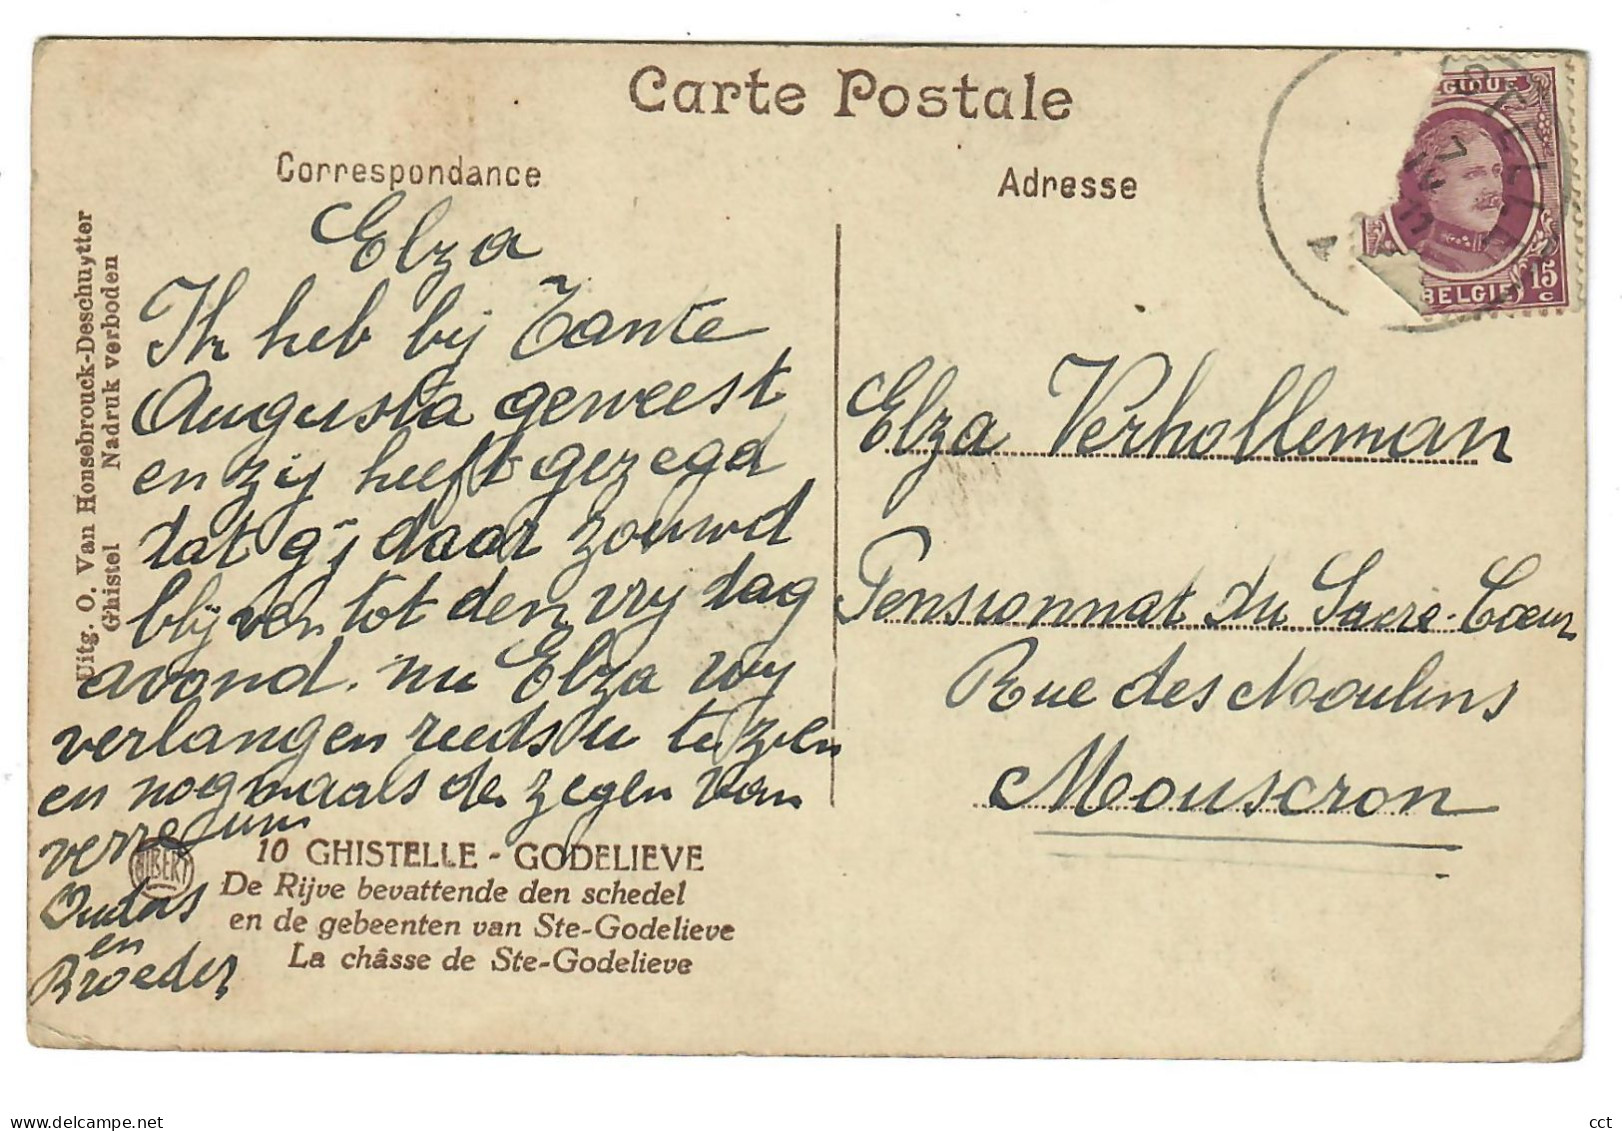 Carte Postale
Correspondance
Adresse
Uitg. O. Van Honsebrouck-Deschuytter
Ghistel Nadruk verboden
GIQUE
15 c
BELGIE
Elza
Ik heb bij Tante
Augusta geweest
en zij heeft gezegd
dat gij daar zouwd
blijven tot den vrydag
avond. nu Elza wy
verlangen reeds u te zien
en nogmaals de zegen van
verre
Ouders
en
Broeder
Elza Verholleman
Pensionnat du Sacre-Coeur
Rue des Moulins
Mouscron
ALBERT
10 GHISTELLE - GODELIEVE
De Rijve bevattende den schedel
en de gebeenten van Ste-Godelieve
La châsse de Ste-Godelieve
www.delcampe.net
cct